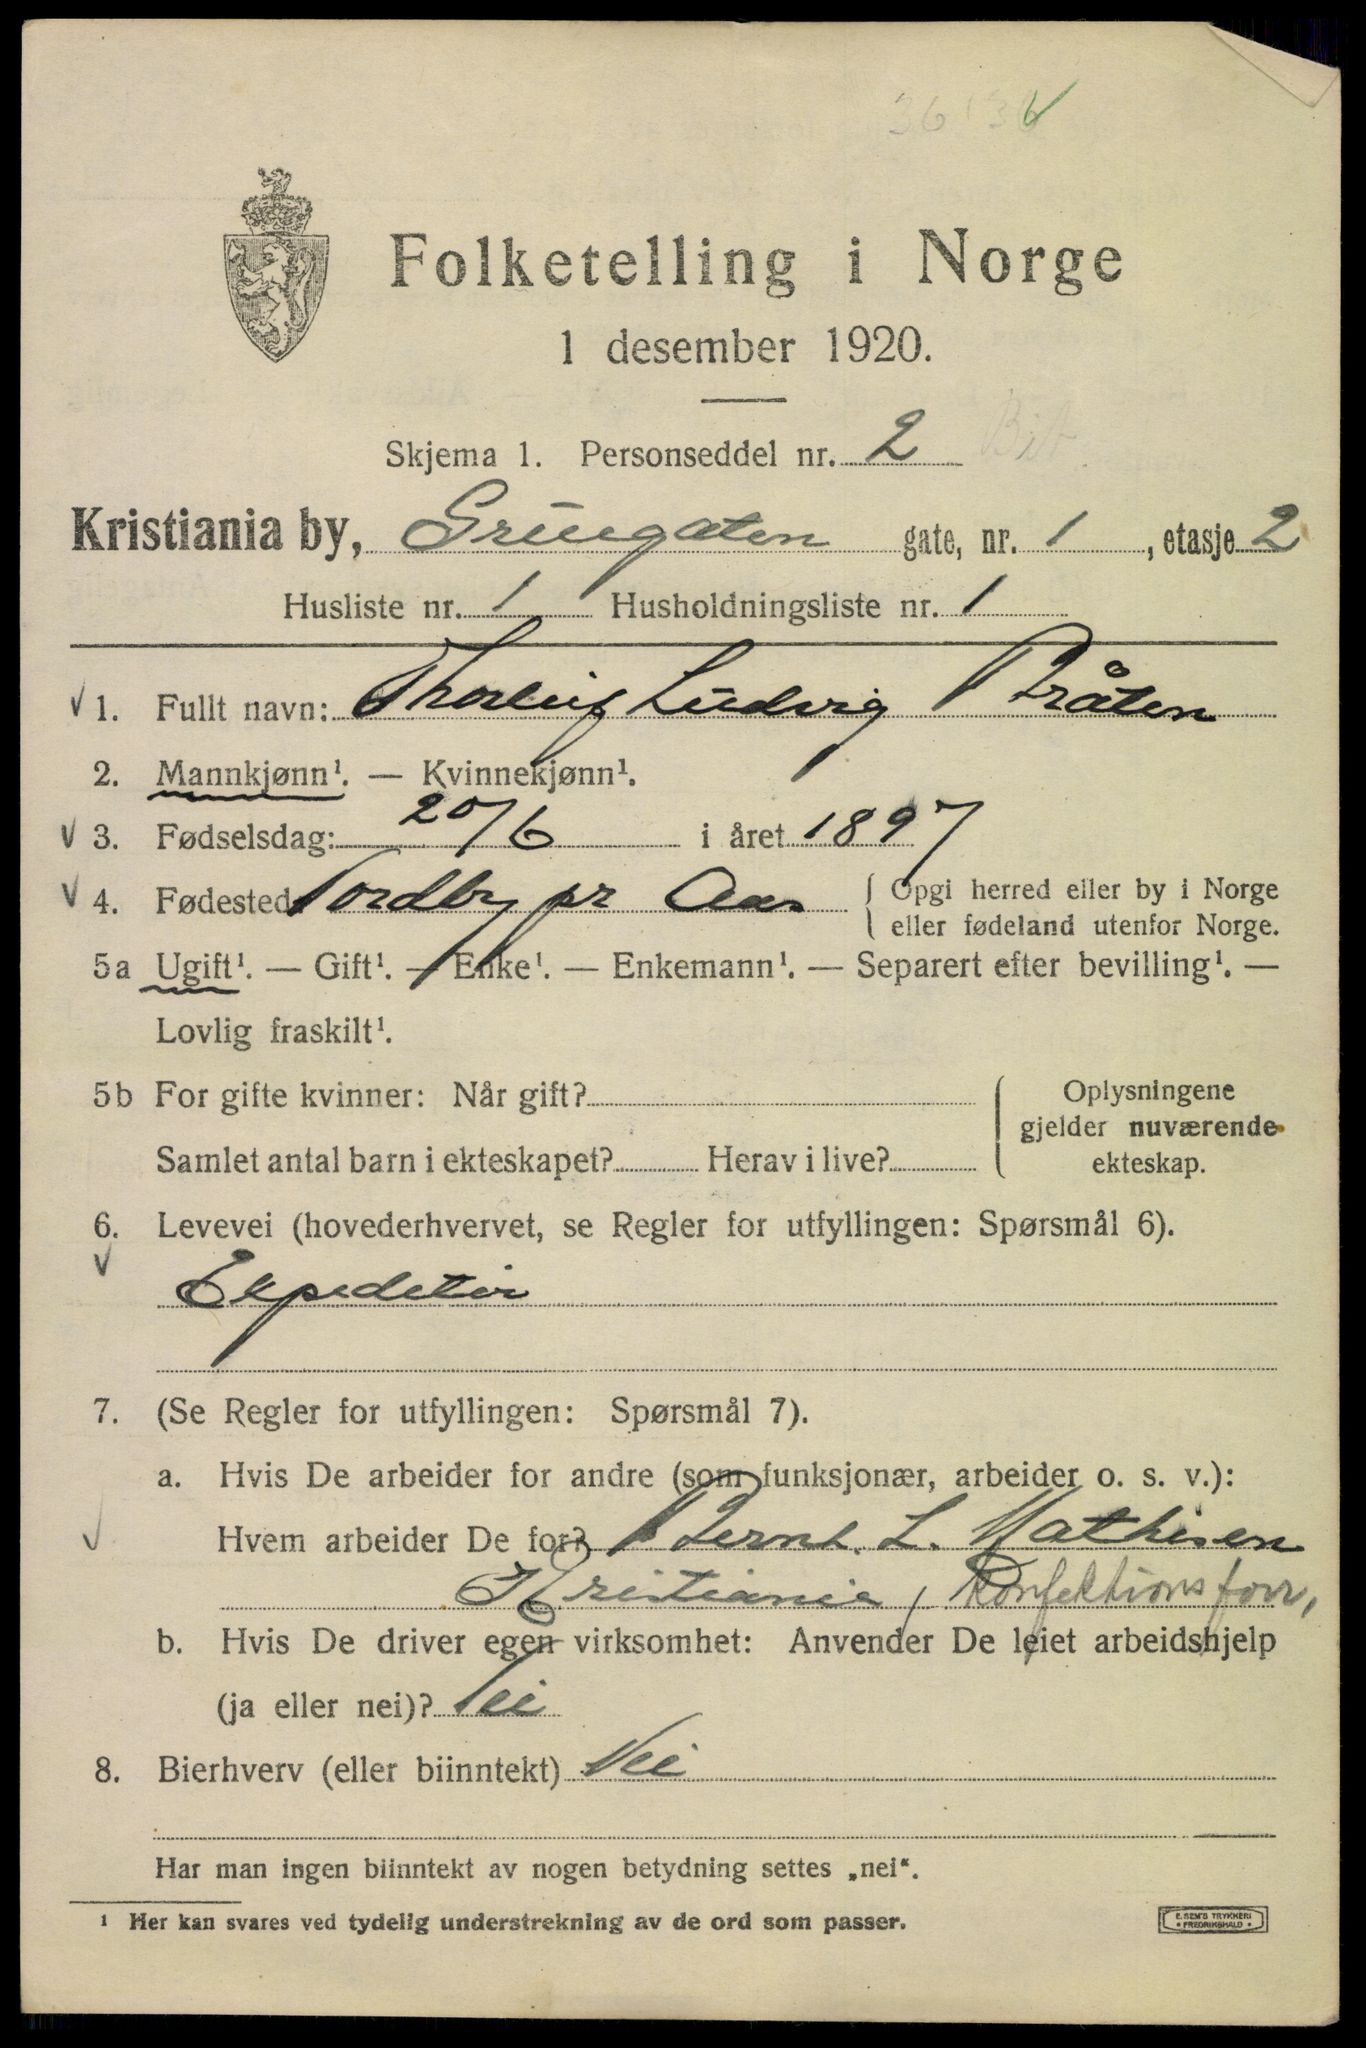 36136
Folketelling i Norge
1 desember 1920.
Skjema 1. Personseddel nr. 2
Kristiania by, Grüegaten gate, nr. 1, etasje 2
Husliste nr. 1 Husholdningsliste nr. 1
1. Fullt navn: Thorleif Ludvig Bråten
2. Mannkjønn¹. — Kvinnekjønn¹.
3. Fødselsdag: 20/6 i året 1897
4. Fødested Nordby pr Aas { Opgi herred eller by i Norge
eller fødeland utenfor Norge.
5a Ugift¹. — Gift¹. — Enke¹. — Enkemann¹. — Separert efter bevilling¹. —
Lovlig fraskilt¹.
5b For gifte kvinner: Når gift? Oplysningene
gjelder nuværende
Samlet antal barn i ekteskapet? Herav i live? ekteskap.
6. Levevei (hovederhvervet, se Regler for utfyllingen: Spørsmål 6).
Expeditør
7. (Se Regler for utfyllingen: Spørsmål 7).
a. Hvis De arbeider for andre (som funksjonær, arbeider o. s. v.):
Hvem arbeider De for? Bernh. L. Mathisen
Kristiania, Konfektionsforr,
b. Hvis De driver egen virksomhet: Anvender De leiet arbeidshjelp
(ja eller nei)? Nei
8. Bierhverv (eller biinntekt) Nei
Har man ingen biinntekt av nogen betydning settes „nei“.
¹ Her kan svares ved tydelig understrekning av de ord som passer.
E. SEM'S TRYKKERI
• FREDRIKSHALD •